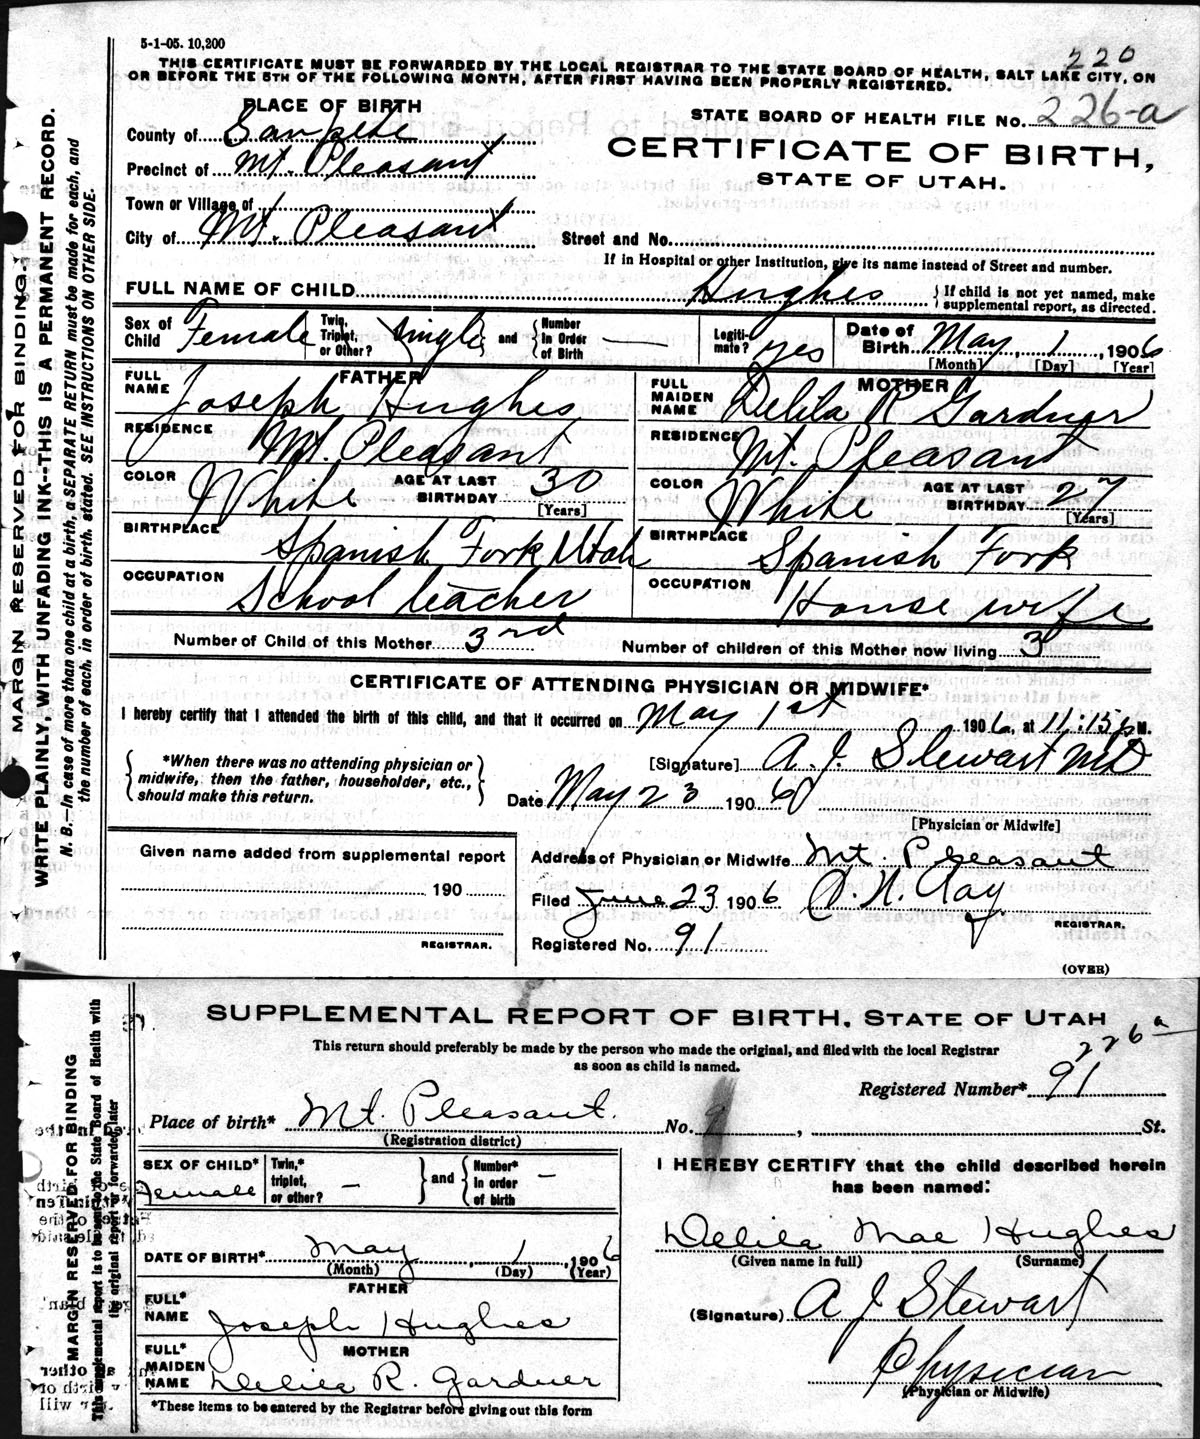 5-1-05. 10,200
220
THIS CERTIFICATE MUST BE FORWARDED BY THE LOCAL REGISTRAR TO THE STATE BOARD OF HEALTH, SALT LAKE CITY, ON
OR BEFORE THE 5TH OF THE FOLLOWING MONTH, AFTER FIRST HAVING BEEN PROPERLY REGISTERED.
PLACE OF BIRTH
STATE BOARD OF HEALTH FILE NO. 226-a
County of Sanpete
CERTIFICATE OF BIRTH,
Precinct of Mt. Pleasant
STATE OF UTAH.
Town or Village of
City of Mt. Pleasant
Street and No.
If in Hospital or other Institution, give its name instead of Street and number.
FULL NAME OF CHILD Hughes { If child is not yet named, make
supplemental report, as directed.
Sex of Child Female Twin, Triplet, or Other? Single and Number In Order of Birth — Legiti-mate? yes Date of Birth May, 1, 1906
[Month] [Day] [Year]
FATHER
FULL NAME Joseph Hughes
RESIDENCE Mt. Pleasant
COLOR White AGE AT LAST BIRTHDAY 30
[Years]
BIRTHPLACE Spanish Fork Utah
OCCUPATION School teacher
MOTHER
FULL MAIDEN NAME Delila R Gardner
RESIDENCE Mt. Pleasant
COLOR White AGE AT LAST BIRTHDAY 27
[Years]
BIRTHPLACE Spanish Fork
OCCUPATION House wife
Number of Child of this Mother 3rd Number of children of this Mother now living 3
CERTIFICATE OF ATTENDING PHYSICIAN OR MIDWIFE*
I hereby certify that I attended the birth of this child, and that it occurred on May 1st 1906, at 11:15 p M.
*When there was no attending physician or
midwife, then the father, householder, etc.,
should make this return.
[Signature] A. J. Stewart MD
Date May 23 1906
[Physician or Midwife]
Given name added from supplemental report
190
REGISTRAR.
Address of Physician or Midwife Mt. Pleasant
Filed June 23 1906
REGISTRAR.
Registered No. 91
(OVER)
MARGIN RESERVED FOR BINDING.
WRITE PLAINLY, WITH UNFADING INK--THIS IS A PERMANENT RECORD.
N. B.—In case of more than one child at a birth, a SEPARATE RETURN must be made for each, and
the number of each, in order of birth, stated. SEE INSTRUCTIONS ON OTHER SIDE.
SUPPLEMENTAL REPORT OF BIRTH, STATE OF UTAH
This return should preferably be made by the person who made the original, and filed with the local Registrar
as soon as child is named.
226a
Registered Number* 91
Place of birth* Mt. Pleasant. No. 9, St.
(Registration district)
SEX OF CHILD* Female Twin,* triplet, or other? — and Number* in order of birth —
DATE OF BIRTH* May, 1, 1906
(Month) (Day) (Year)
FATHER
FULL* NAME Joseph Hughes
MOTHER
FULL* MAIDEN NAME Delila R. Gardner
*These items to be entered by the Registrar before giving out this form
I HEREBY CERTIFY that the child described herein
has been named:
Delila Mae Hughes
(Given name in full) (Surname)
(Signature) A J Stewart
Physician
(Physician or Midwife)
MARGIN RESERVED FOR BINDING
This supplemental report is to be sent to the State Board of Health with
the original report or forwarded later